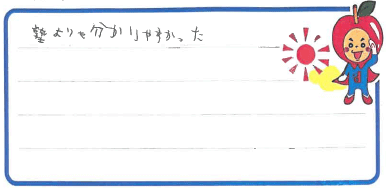 塾よりも分かりやすかった